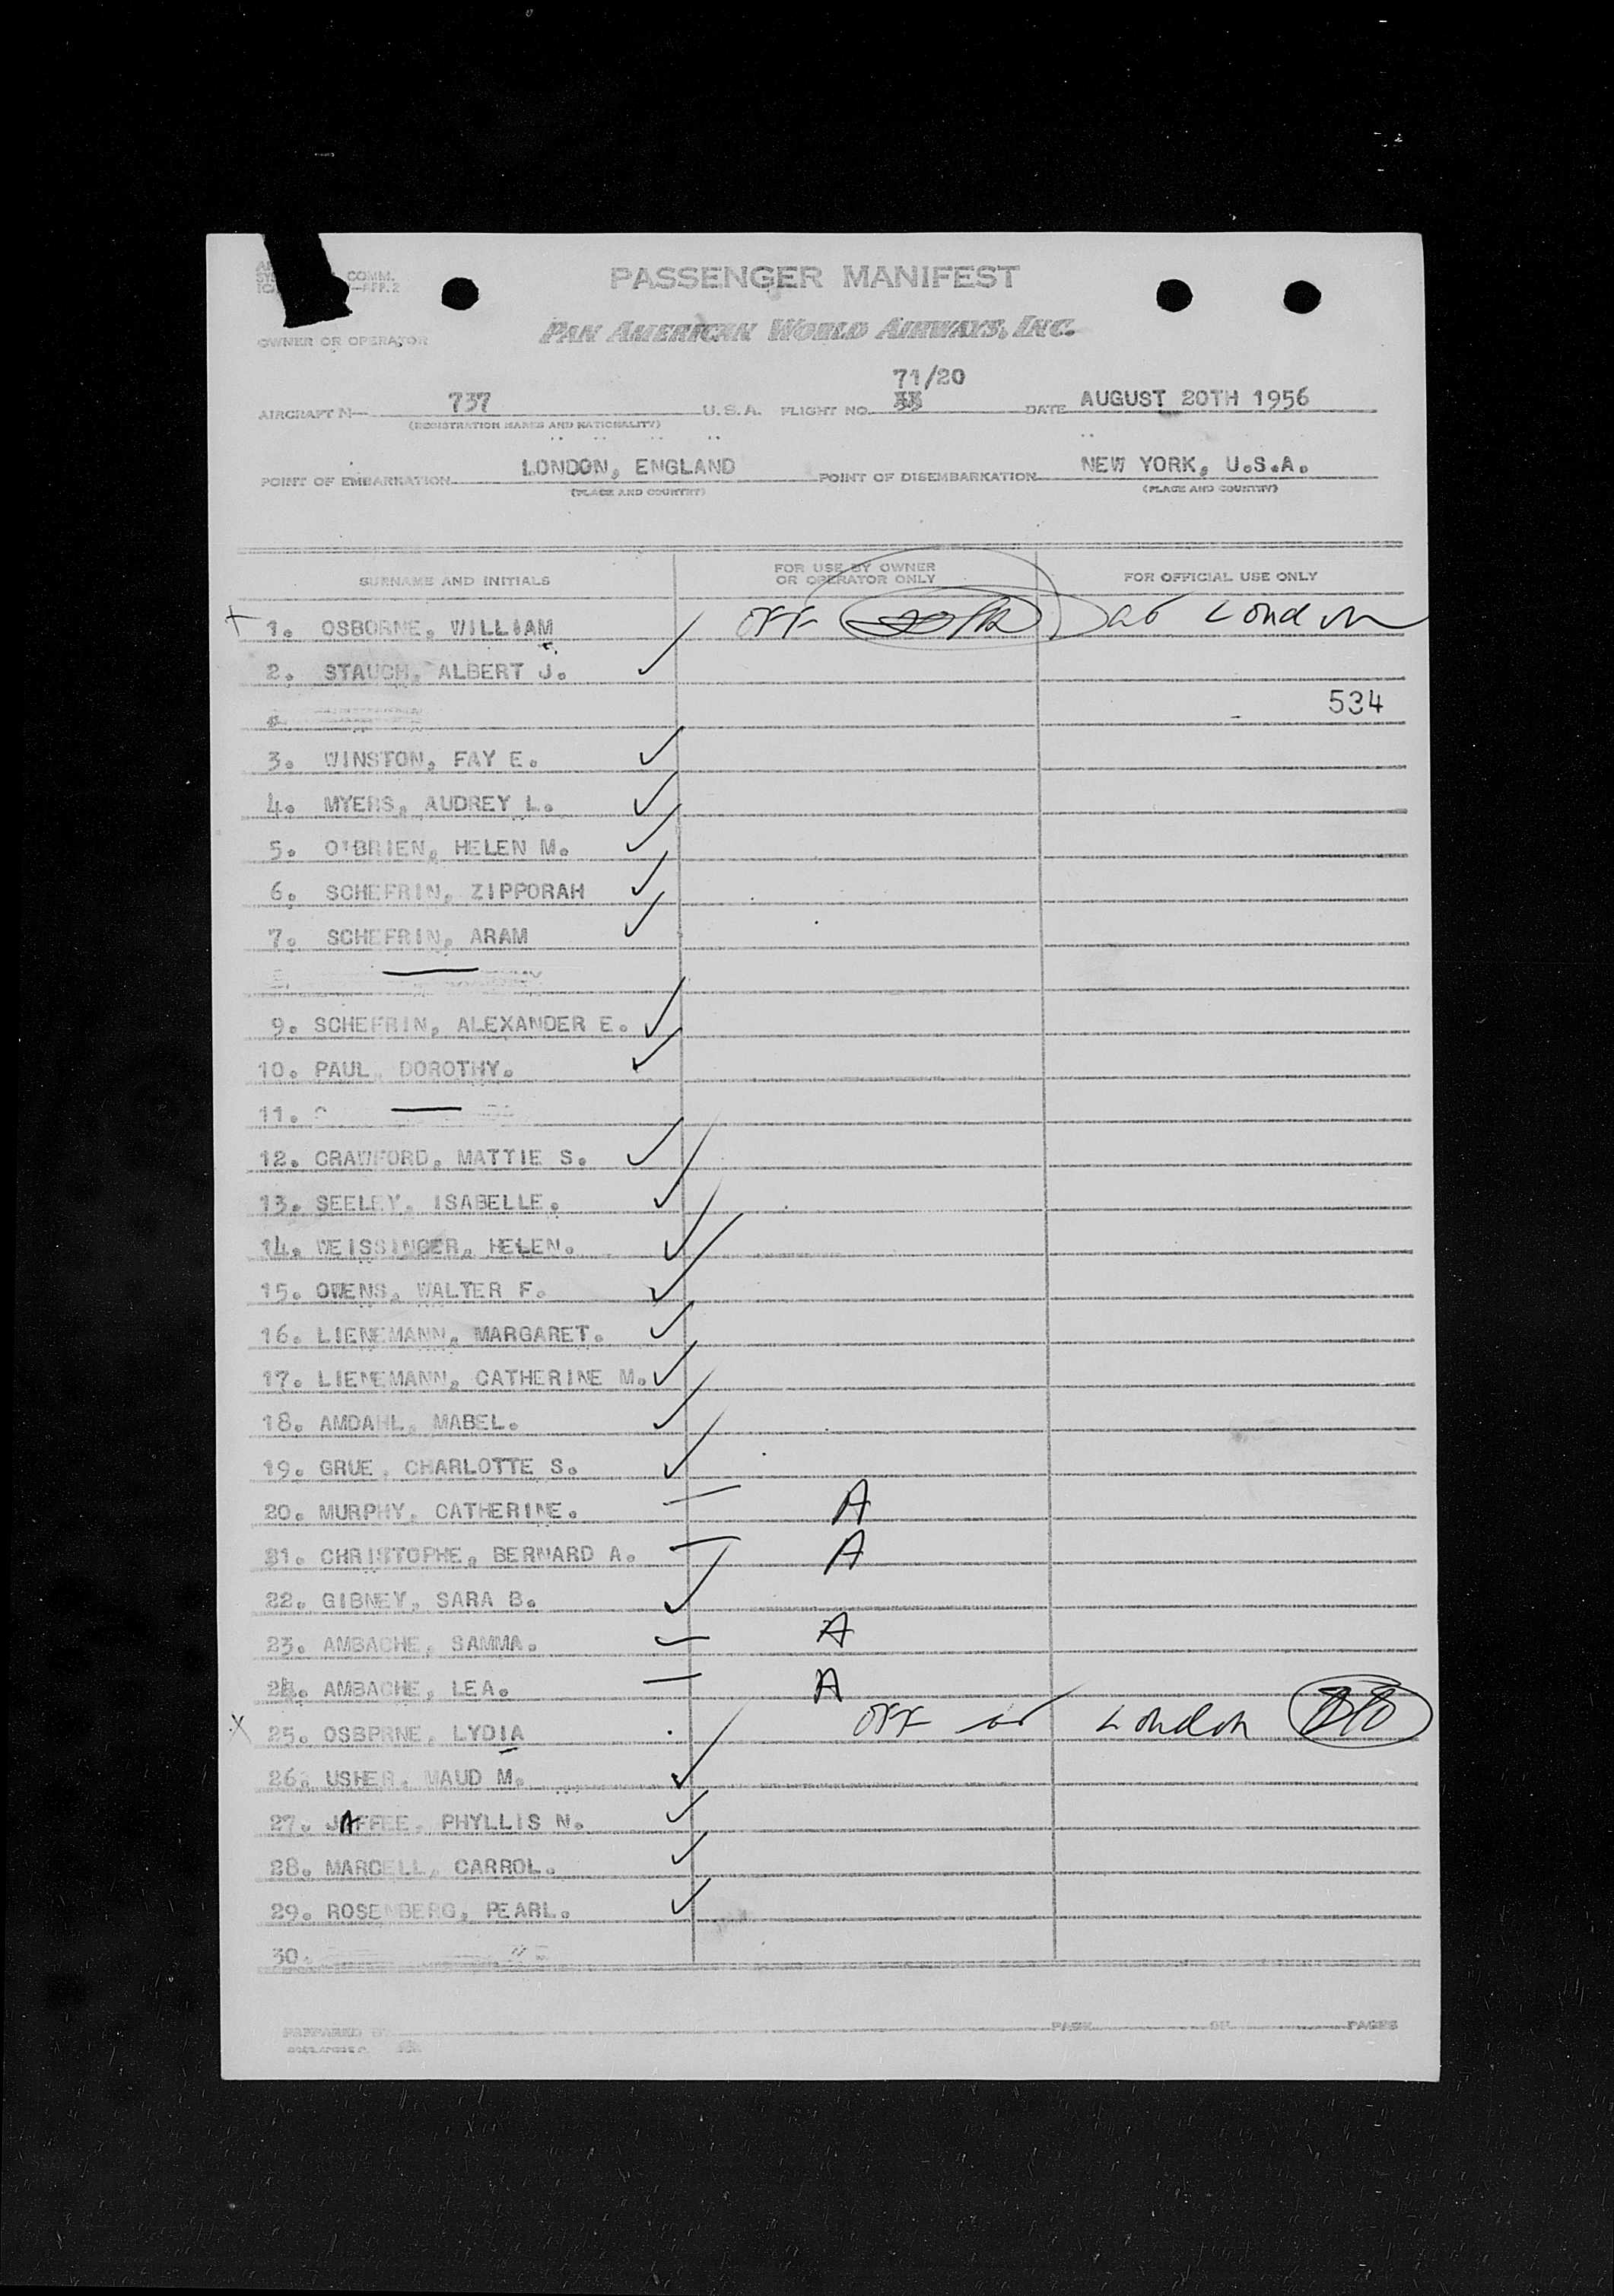 COMM.
PASSENGER MANIFEST
PAN AMERICAN WORLD AIRWAYS, INC.
OWNER OR OPERATOR
71/20
AIRCRAFT N— 737 U.S.A. FLIGHT NO. 33 DATE AUGUST 20TH 1956
(REGISTRATION MARKS AND NATIONALITY)
POINT OF EMBARKATION LONDON, ENGLAND POINT OF DISEMBARKATION NEW YORK, U.S.A.
(PLACE AND COUNTRY) (PLACE AND COUNTRY)
SURNAME AND INITIALS FOR USE BY OWNER OR OPERATOR ONLY FOR OFFICIAL USE ONLY
1. OSBORNE, WILLIAM OFF at London
2. STAUCH, ALBERT J.
534
3. WINSTON, FAY E.
4. MYERS, AUDREY L.
5. O'BRIEN, HELEN M.
6. SCHEFRIN, ZIPPORAH
7. SCHEFRIN, ARAM
9. SCHEFRIN, ALEXANDER E.
10. PAUL, DOROTHY.
11.
12. CRAWFORD, MATTIE S.
13. SEELEY, ISABELLE.
14. WEISSINGER, HELEN.
15. OWENS, WALTER F.
16. LIENEMANN, MARGARET.
17. LIENEMANN, CATHERINE M.
18. AMDAHL, MABEL.
19. GRUE, CHARLOTTE S.
20. MURPHY, CATHERINE. A
21. CHRISTOPHE, BERNARD A. A
22. GIBNEY, SARA B.
23. AMBACHE, SAMMA. A
24. AMBACHE, LEA. A
25. OSBPRNE, LYDIA OFF at London
26. USHER, MAUD M.
27. JAFFEE, PHYLLIS N.
28. MARCELL, CARROL.
29. ROSENBERG, PEARL.
30.
PREPARED BY PAGE OF PAGES